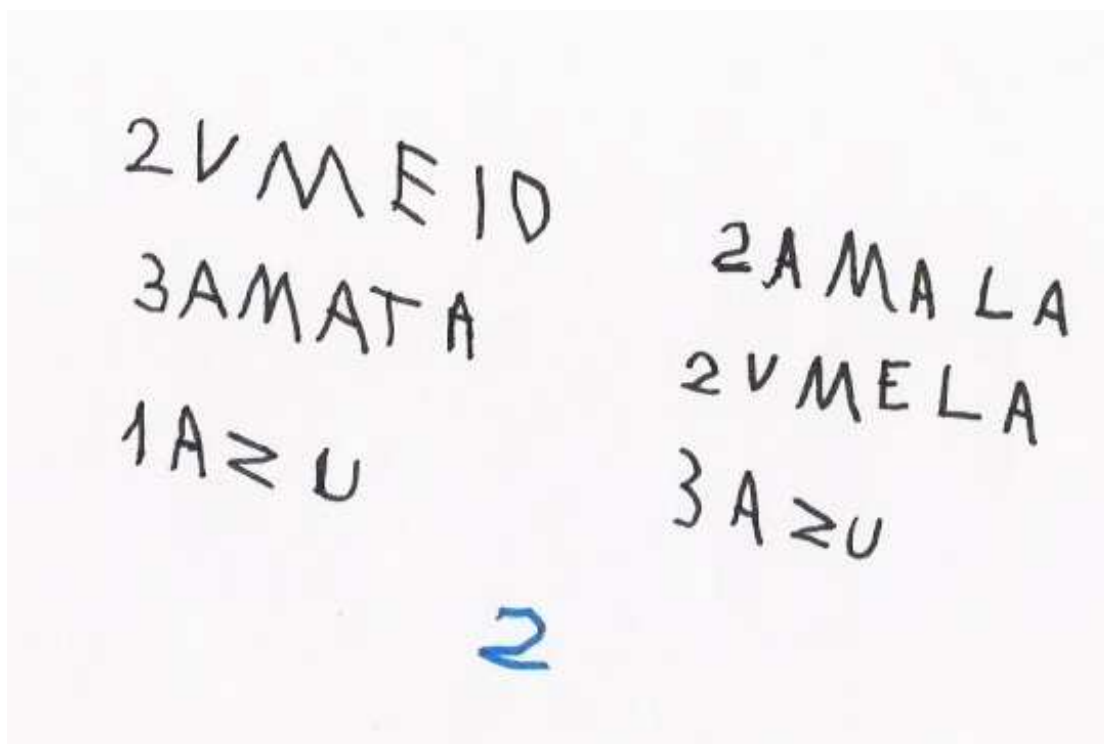 2VMEIO
3AMATA
1AZU
2AMALA
2VMELA
3AZU
2